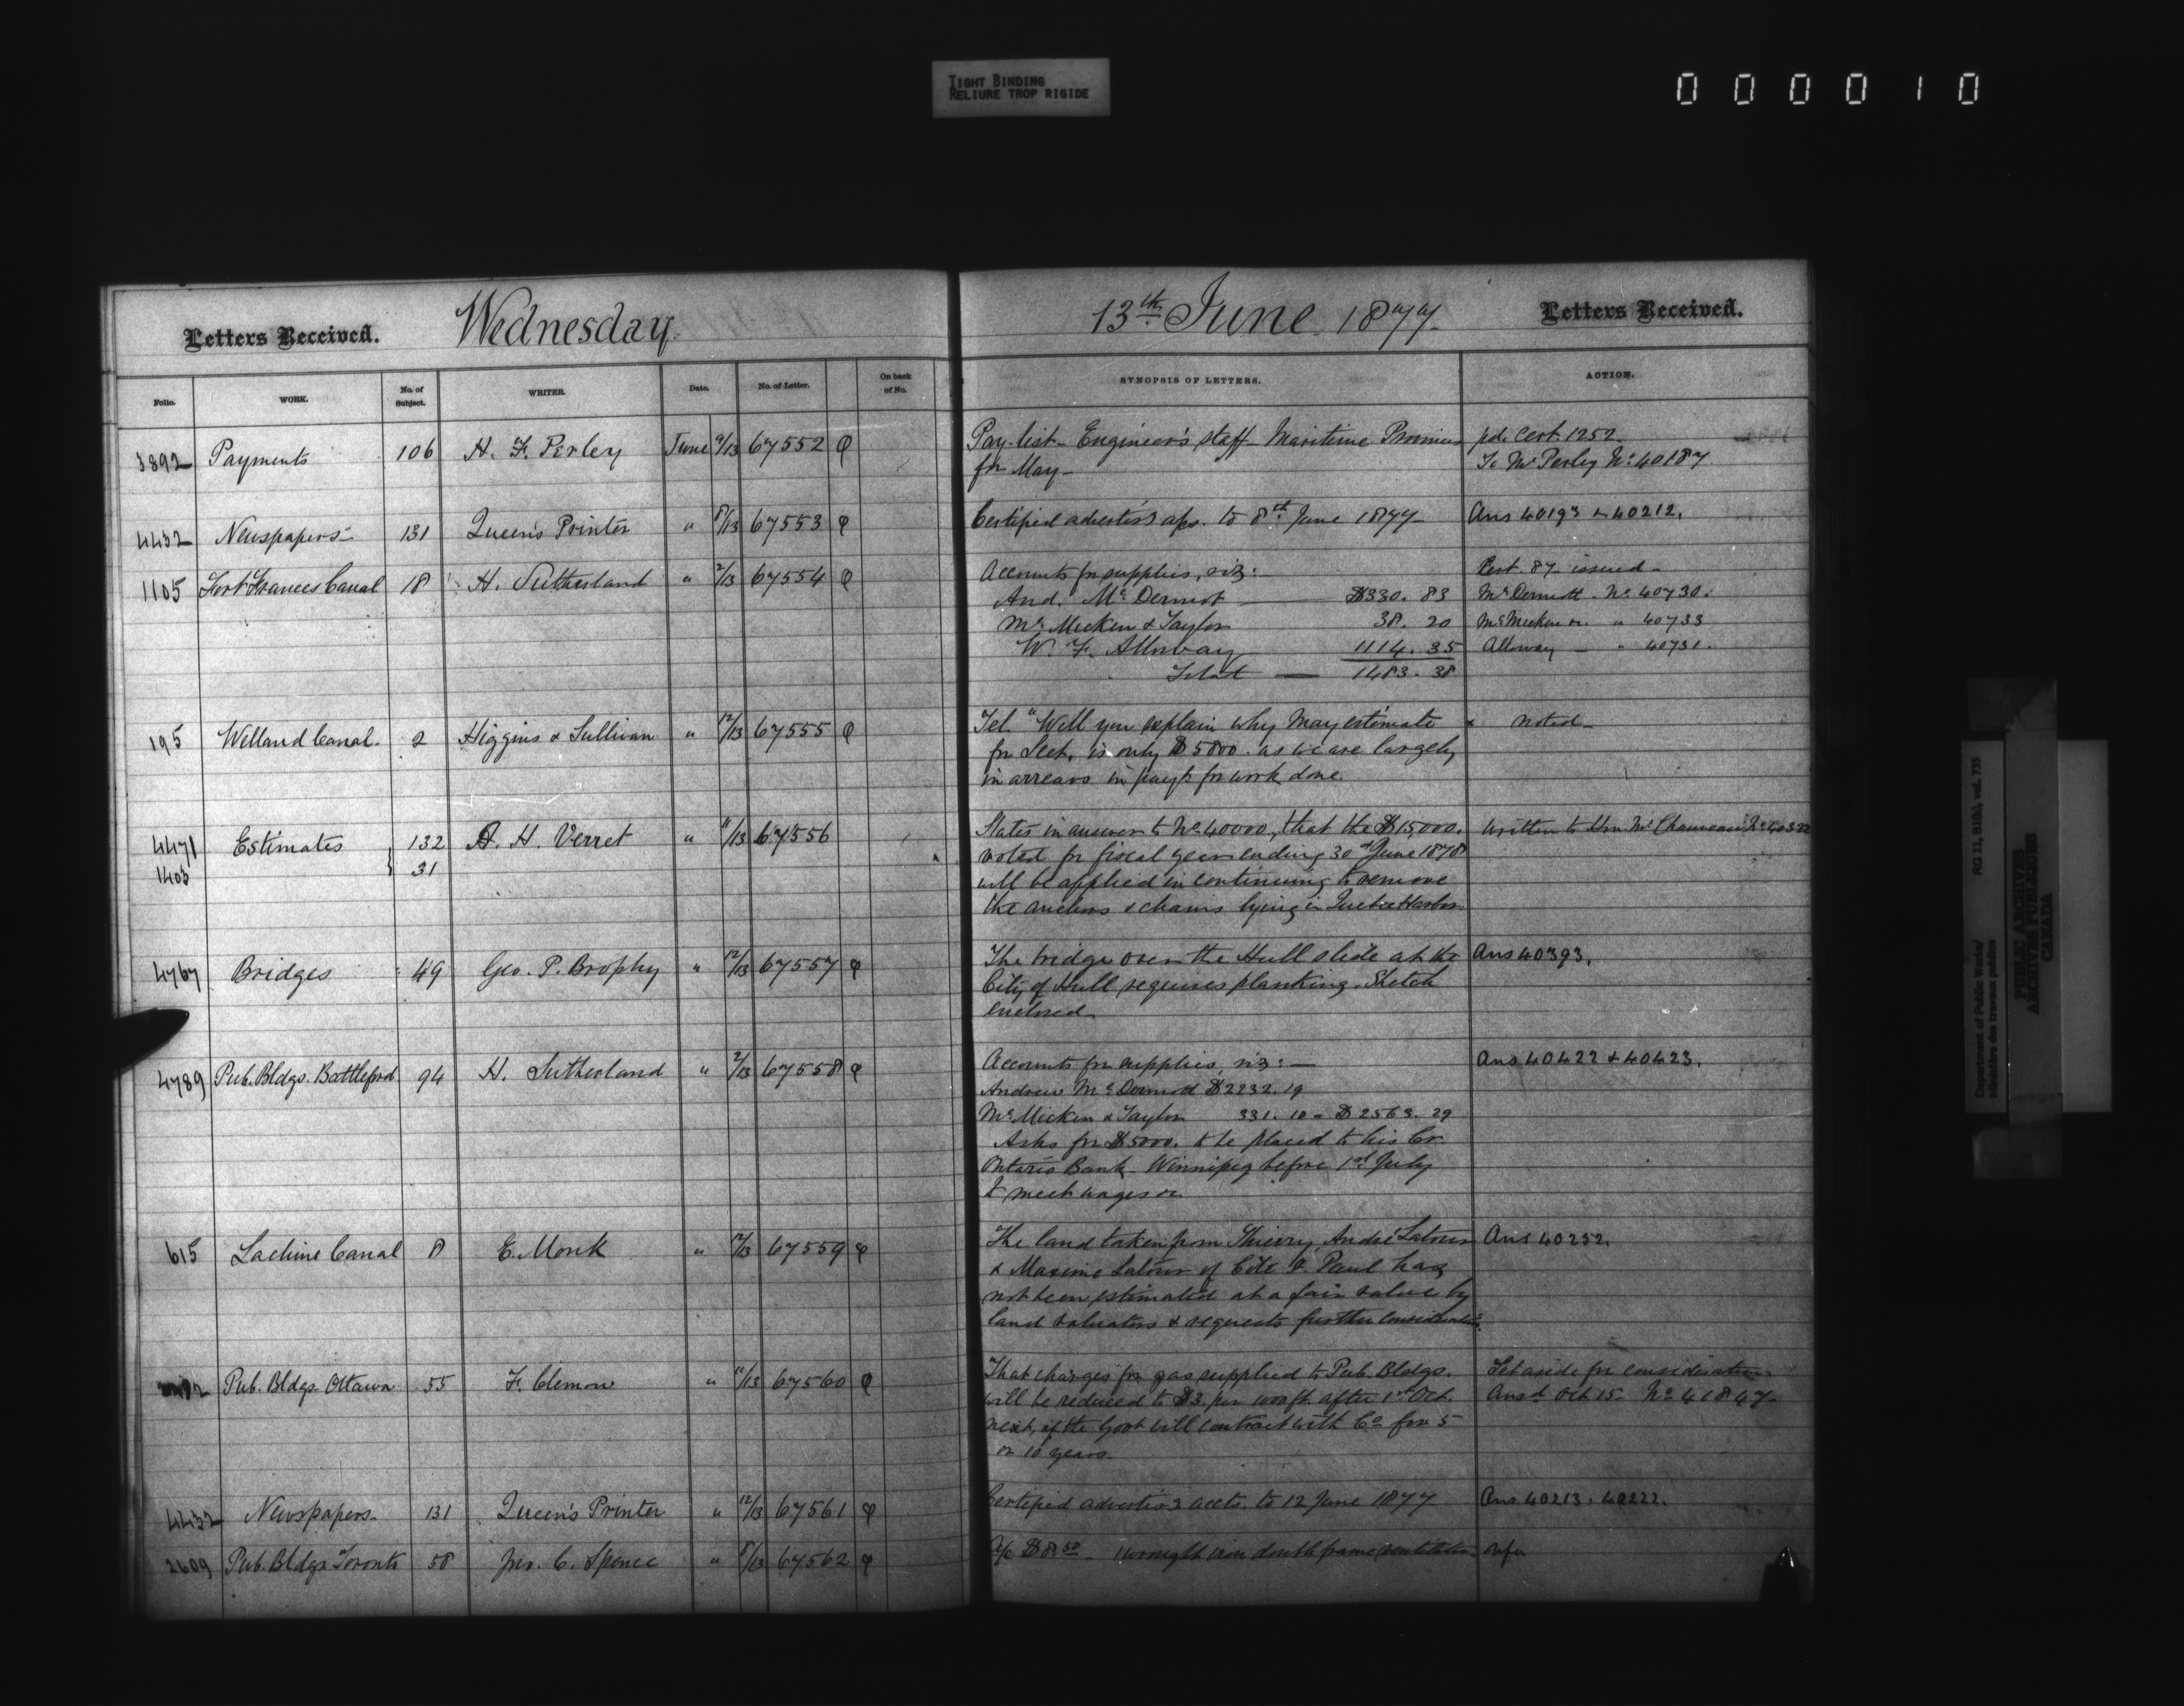 TIGHT BINDING
RELIURE TROP RIGIDE
000010
Letters Received. Wednesday 13th June 1877 Letters Received.
Folio. WORK. No. of Subject. WRITER. Date. No. of Letter. On back of No. SYNOPSIS OF LETTERS. ACTION.
3892 Payments 106 H. F. Perley June 9/13 67552 Pay-list - Engineer's staff - Maritime Provinces pd. Cert. 1252.
for May - To Mr Perley No. 40187
4432 Newspapers 131 Queen's Printer " 8/13 67553 Certified advertis'g a/cs. to 8th June 1877 - Ans 40193 & 40212.
1105 Fort Frances Canal 18 H. Sutherland " 2/13 67554 Accounts for supplies, viz: Cert. 87 issued -
And. McDermot $330.83 McDermott - No. 40730.
McMicken & Taylor 38.20 McMicken &c. " 40733
W. F. Alloway 1114.35 Alloway - " 40731.
Total - 1483.38
195 Welland Canal. 2 Higgins & Sullivan " 12/13 67555 Tel. "Will you explain why May estimate noted -
for Sect. is only $5800. as we are largely
in arrears in payts for work done.
4471 Estimates 132 A. H. Verret " 11/13 67556 States in answer to No. 40000, that the $15,000. Written to Hon. Mr. Chauveau No. 40322
1403 31 voted for fiscal year ending 30th June 1878
will be applied in continuing to remove
the anchors & chains lying in Quebec Harbor.
4767 Bridges 49 Geo. P. Brophy " 12/13 67557 The bridge over the Hull slide at the Ans 40393.
City of Hull requires planking. Sketch
enclosed.
4789 Pub. Bldgs. Battleford 94 H. Sutherland " 2/13 67558 Accounts for supplies, viz: - Ans 40422 & 40423.
Andrew McDermott $2232.19
McMicken & Taylor 331.10 = $2563.29
Asks for $5000. to be placed to his Cr.
Ontario Bank Winnipeg before 1st July
to meet wages &c.
615 Lachine Canal 8 E. Monk " 12/13 67559 The land taken from Thierry, André Latour Ans 40252.
& Maxime Latour of Côte St. Paul has
not been estimated at a fair value by
land valuators & requests further consideration.
Pub. Bldgs. Ottawa 55 F. Clemow " 12/13 67560 That charges for gas supplied to Pub. Bldgs. Set aside for consideration
will be reduced to $3. per 1000 ft. after 1st Oct. Ansd Oct 15 No. 41847 -
next, if the Govt will contract with Co. for 5
or 10 years.
4432 Newspapers. 131 Queen's Printer " 12/13 67561 Certified advertis'g accts. to 12 June 1877 Ans 40213. 40222.
2609 Pub. Bldgs Toronto 58 Jno. C. Spence " 8/13 67562 A/c $8.50 - 1 wrought iron double frame ventilator.
Department of Public Works/
Ministère des travaux publics
RG 11, B1(a), vol. 735
PUBLIC ARCHIVES
ARCHIVES PUBLIQUES
CANADA